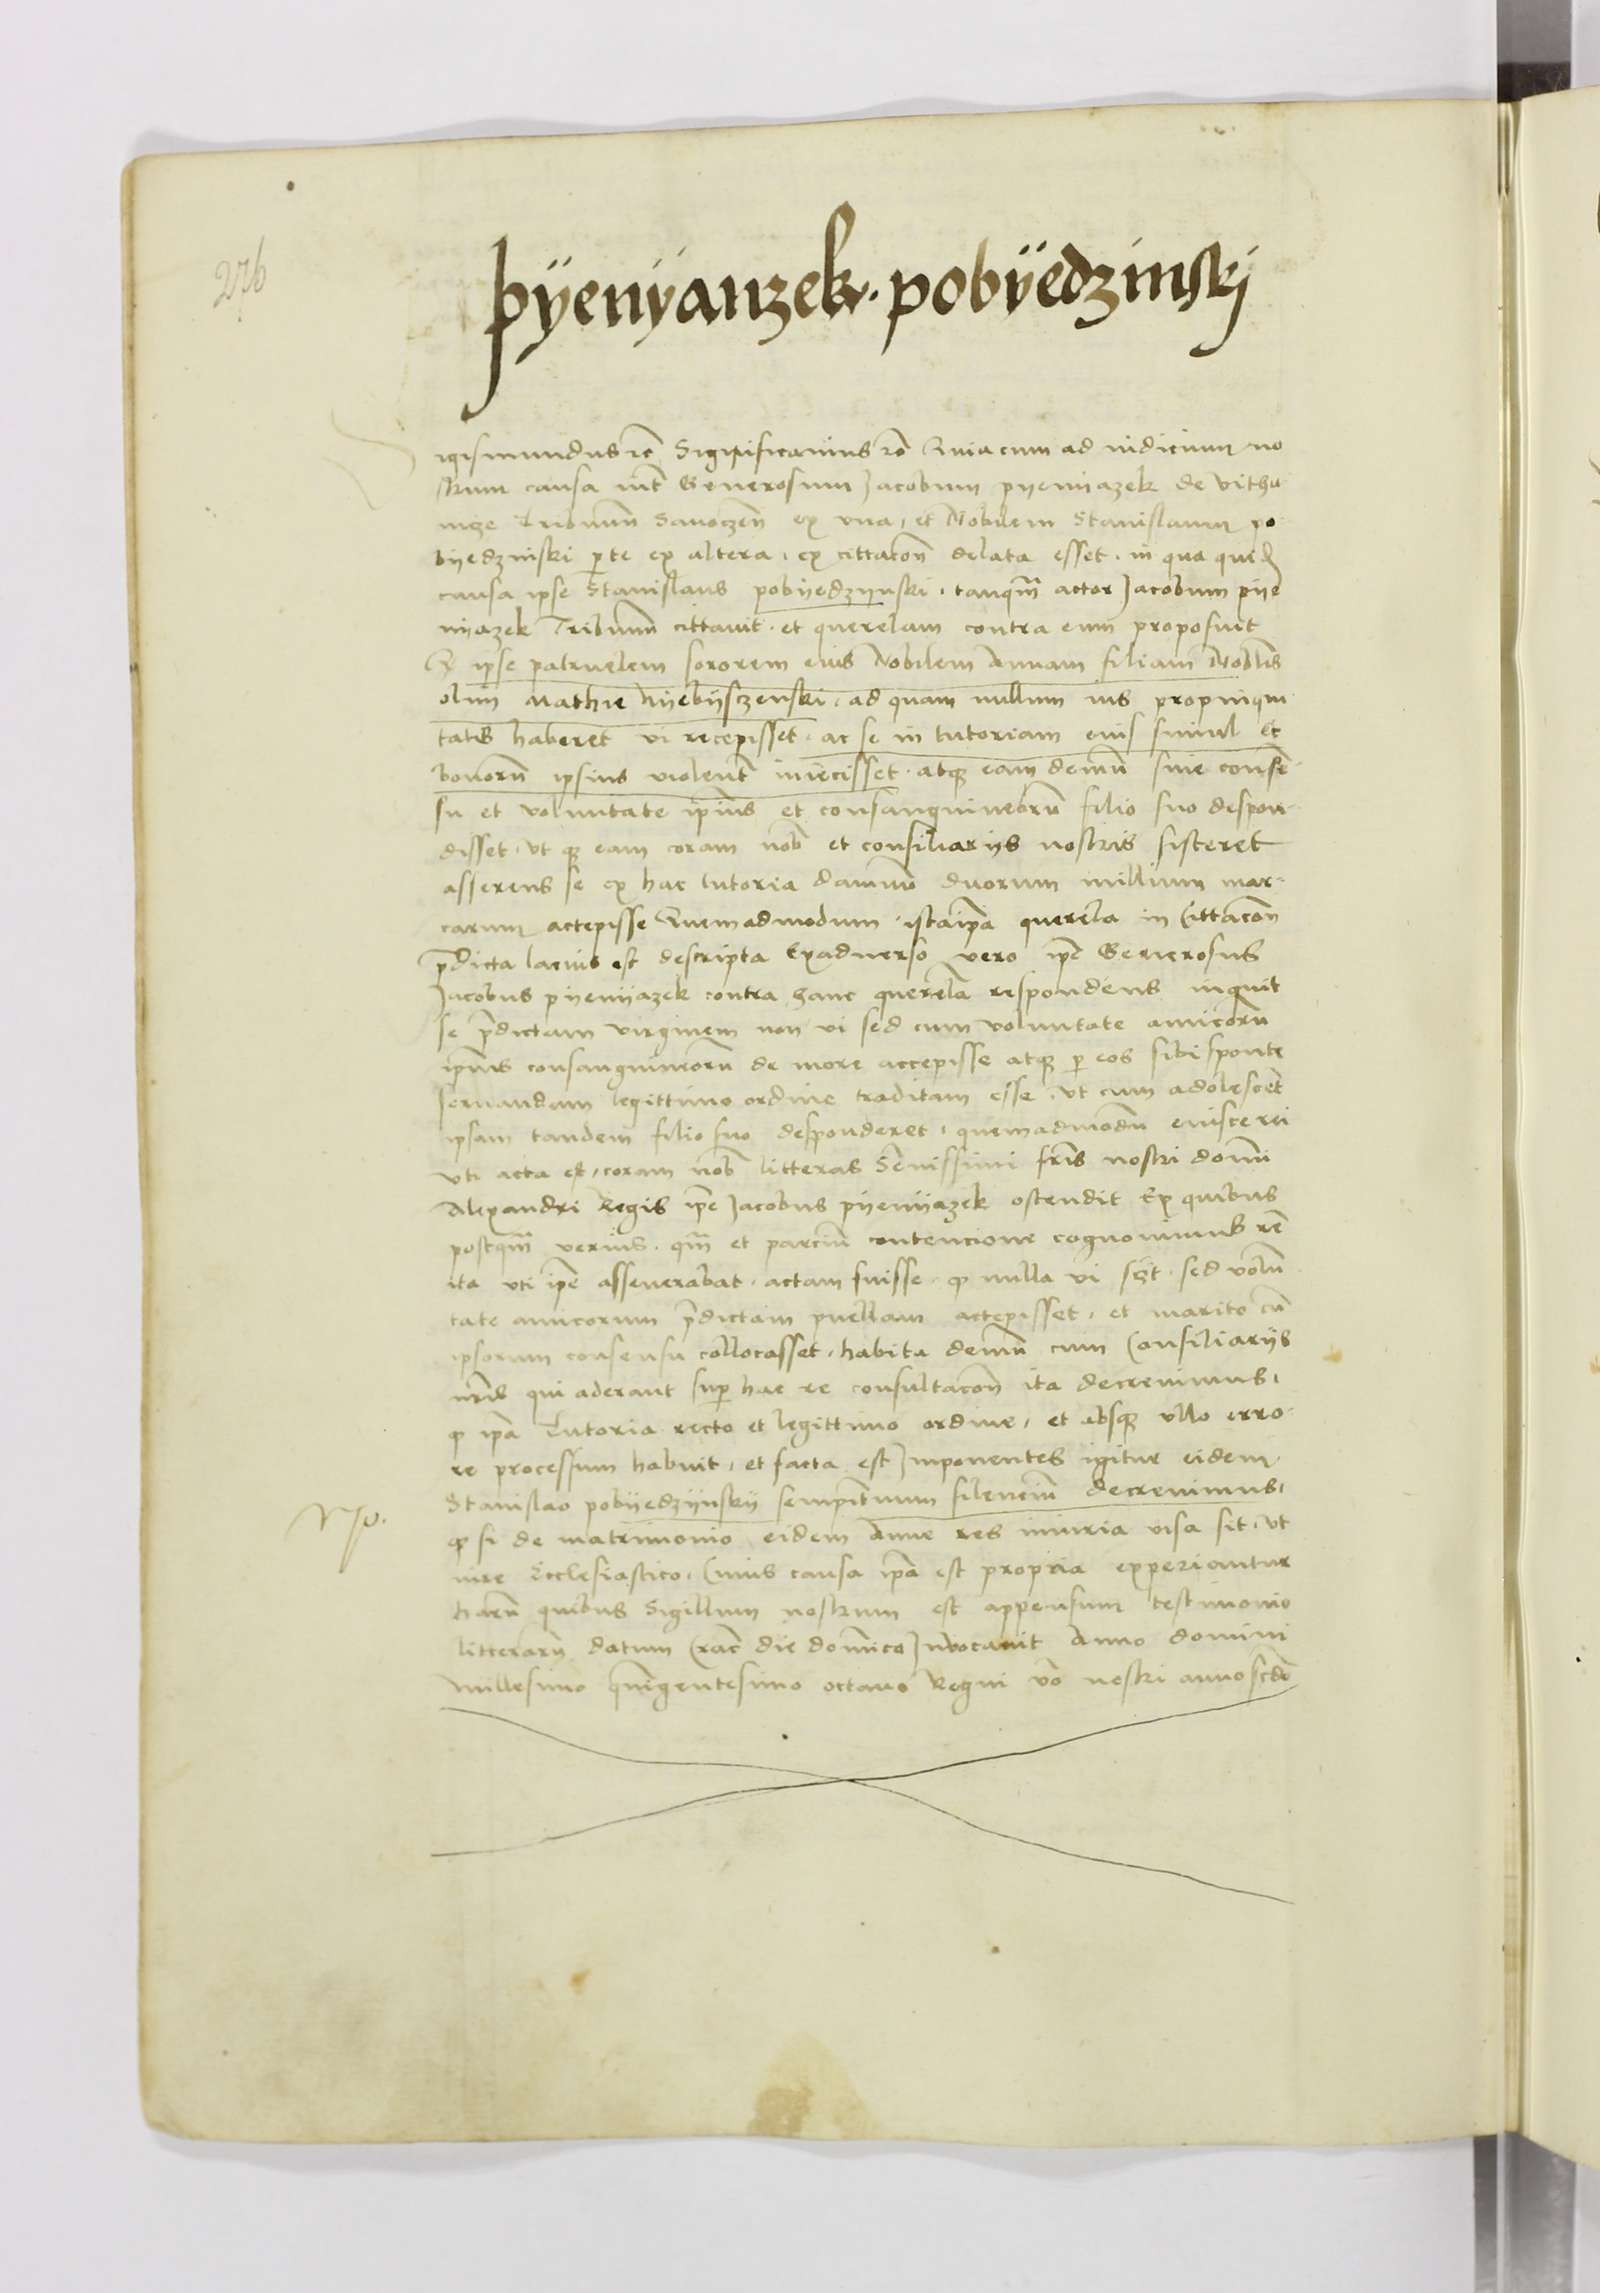 276
pÿenÿanzek · pobÿedzinskj
Sigismundus rc̃ Significamus rc̃ Quia cum ad iudicium no
strum causa int̃ Generosum Jacobum pyenyazek de Vithu
nicze Tribunũ Sanoczeñ ex vna, et Nobilem Stanislaum po
byedzinski pte ex altera, ex cittacoñ delata esset, in qua quid
causa ipse Stanislaus pobyedzynski, tanqm̃ actor Jacobum pye
nyazek Tribunũ cittauit, et querelam contra eum proposuit
Q ipse patruelem sororem eius Nobilem Annam filiam Nobilis
olim Mathie Nyebysczenski, ad quam nullum ius propinqui
tatis haberet vi recepisset, ac se in tutoriam eius simul et
bonorũ ipsius violent̃ iniecisset, atqz eam demũ sine consen
su et voluntate ipius et consanguineorũ filio suo despon
disset, vt qz eam coram nob et consiliariis nostris sisteret
asserens se ex hac tutoria damnũ duorum millium mar
carum accepisse Quemadmodum istaipa querela in Cittacoñ
p̃dicta lacius est descripta Exaduerso vero ipe Generosus
Jacobus pyenyazek contra hanc querelã respondens inquit
se p̃dictam virginem non vi sed cum voluntate amicorũ
ipius consanguineorũ de more accepisse atqz p eos sibi sponte
seruandam legittimo ordine traditam esse, vt cum adolescet
ipsam tandem filio suo desponderet, quemadmodũ eiusce rei
vti acta est, coram nob litteras Senissimi fr̃is nostri domĩ
Alexandri Regis ipe Jacobus pyenyazek ostendit Ex quibus
postqm̃ verius, qm̃ et parciũ contencione cognouimus rẽ
ita vti ipe asseuerabat, actam fuisse, qz nulla vi sed volũ
tate amicorum p̃dictam puellam accepisset, et marito cũ
ipsorum consensu collocasset, habita demũ cum Consiliariis
nr̃is qui aderant sup hac re consultacoñ ita decreuimus,
q ipa Tutoria recto et legittimo ordine, et absqz vllo erro
re processum habuit, et facta est Imponentes igitur eidem
Stanislao pobyedzynsky sempit̃num silenciũ decreuimus,
q si de matrimonio eidem Anne res iniuria visa sit, vt
iure Ecclesiastico, Cuius causa ipa est propria experiantur
harũ quibus Sigillum nostrum est appensum testimonio
litterarũ datum Crac̃ die domĩco Inuocauit Anno domini
Millesimo quĩgentesimo octauo Regni vo nostri anno scdo